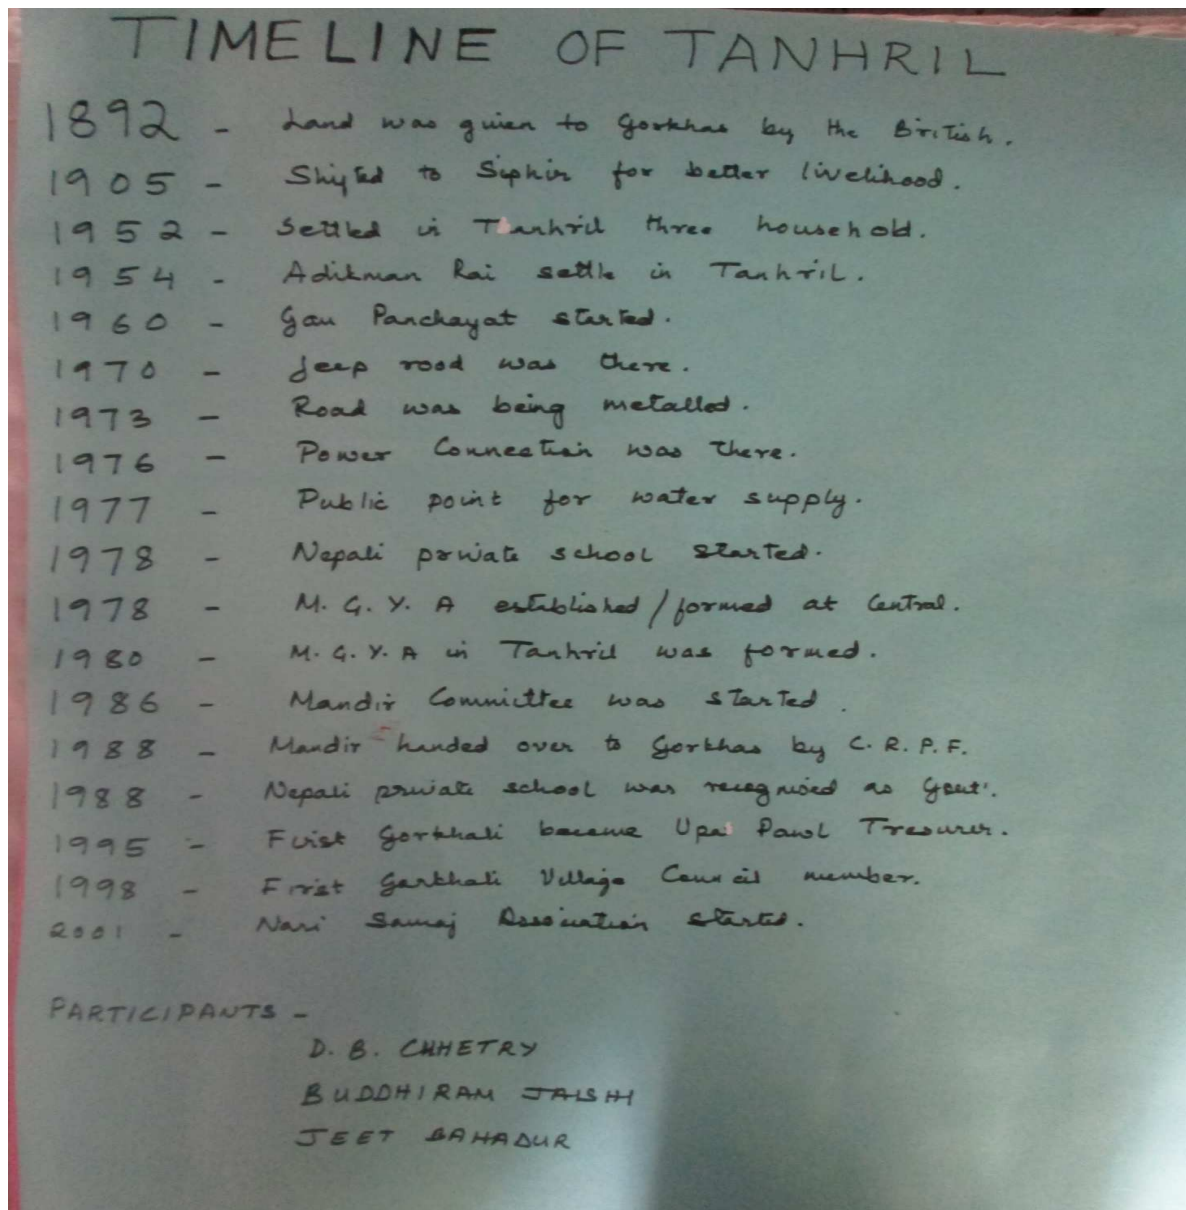 TIMELINE OF TANHRIL
1892 - Land was given to Gorkhas by the British.
1905 - Shifted to Siphir for better livelihood.
1952 - Settled in Tanhril three household.
1954 - Adikman Rai settle in Tanhril.
1960 - Gau Panchayat started.
1970 - Jeep road was there.
1973 - Road was being metalled.
1976 - Power Connection was there.
1977 - Public point for water supply.
1978 - Nepali private school started.
1978 - M. G. Y. A established/formed at Central.
1980 - M. G. Y. A in Tanhril was formed.
1986 - Mandir Committee was started.
1988 - Mandir handed over to Gorkhas by C. R. P. F.
1988 - Nepali private school was recognised as Govt'.
1995 - First Gorkhali became Upa Pawl Tresurer.
1998 - First Gorkhali Village Council member.
2001 - Nari Samaj Association started.
PARTICIPANTS -
D. B. CHHETRY
BUDDHIRAM JAISHI
JEET BAHADUR